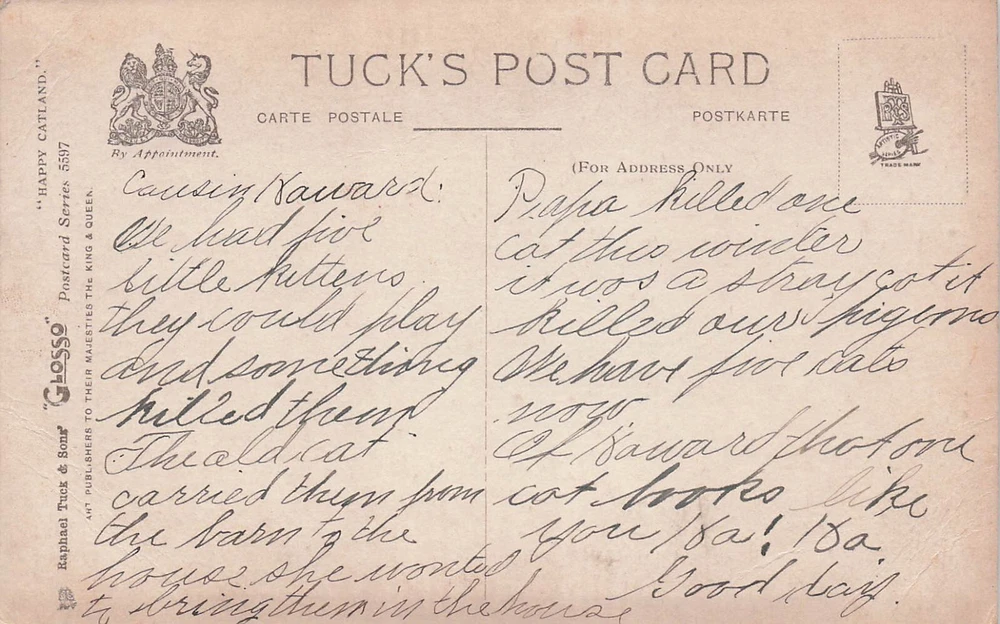 TUCK'S POST CARD
CARTE POSTALE
POSTKARTE
By Appointment.
(FOR ADDRESS ONLY
TRADE MARK
"HAPPY CATLAND."
Raphael Tuck & Sons' "GLOSSO" Postcard Series 5597
ART PUBLISHERS TO THEIR MAJESTIES THE KING & QUEEN.
Cousin Haward:
We had five
little kittens
they could play
and something
killed them
The old cat
carried them from
the barn to the
house she wonted
to bring them in the house
Papa killed one
cat this winter
it was a stray cat it
killed our pigeons
We have five cats
now
Of Haward that one
cat looks like
you Ha! Ha
Good day.